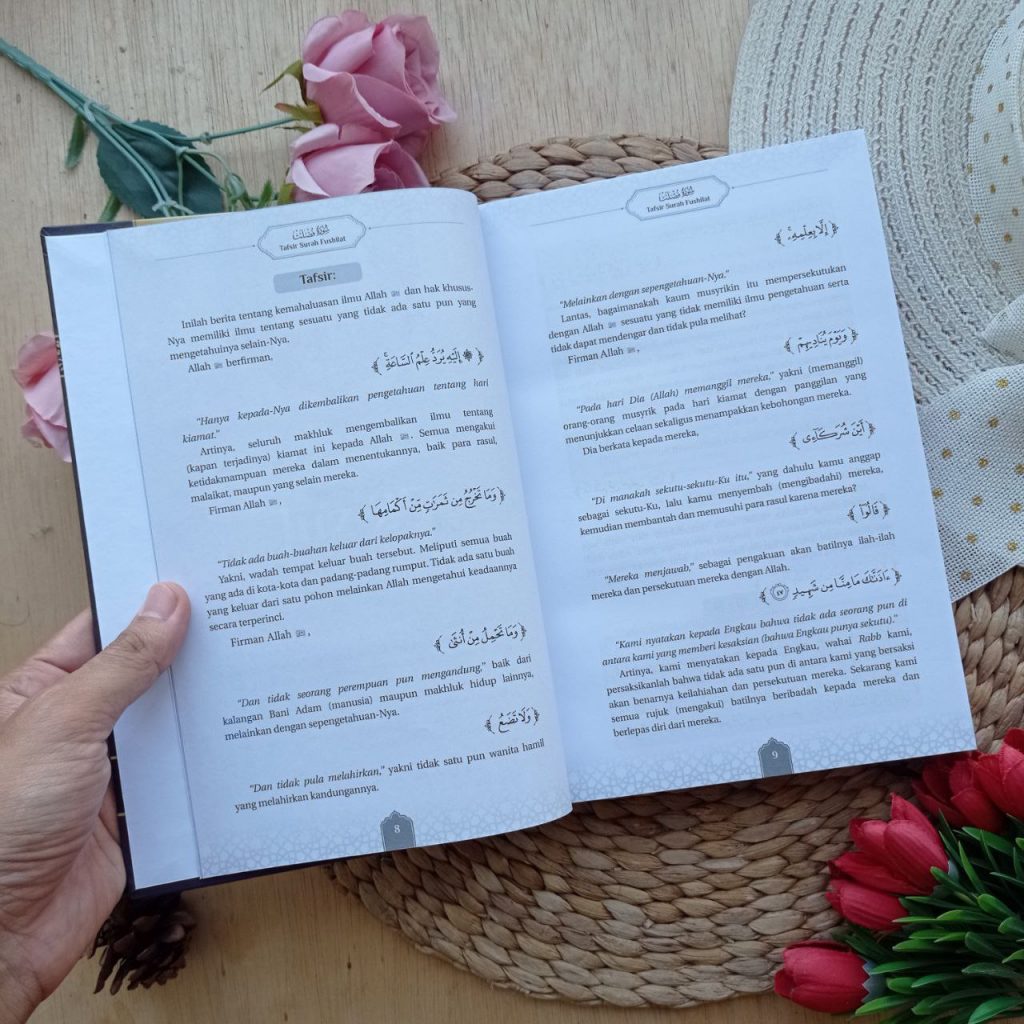 سُورَةُ فُصِّلَتْ
Tafsir Surah Fushilat
Tafsir:
Inilah berita tentang kemahaluasan ilmu Allah ﷻ dan hak khusus-
Nya memiliki ilmu tentang sesuatu yang tidak ada satu pun yang
mengetahuinya selain-Nya.
Allah ﷻ berfirman,
﴿ ۞ إِلَيْهِ يُرَدُّ عِلْمُ ٱلسَّاعَةِۚ ﴾
"Hanya kepada-Nya dikembalikan pengetahuan tentang hari
kiamat."
Artinya, seluruh makhluk mengembalikan ilmu tentang
(kapan terjadinya) kiamat ini kepada Allah ﷻ. Semua mengakui
ketidakmampuan mereka dalam menentukannya, baik para rasul,
malaikat, maupun yang selain mereka.
Firman Allah ﷻ,
﴿ وَمَا تَخْرُجُ مِن ثَمَرَٰتٍ مِّنْ أَكْمَامِهَا ﴾
"Tidak ada buah-buahan keluar dari kelopaknya."
Yakni, wadah tempat keluar buah tersebut. Meliputi semua buah
yang ada di kota-kota dan padang-padang rumput. Tidak ada satu buah
yang keluar dari satu pohon melainkan Allah mengetahui keadaannya
secara terperinci.
Firman Allah ﷻ,
﴿ وَمَا تَحْمِلُ مِنْ أُنثَىٰ ﴾
"Dan tidak seorang perempuan pun mengandung," baik dari
kalangan Bani Adam (manusia) maupun makhluk hidup lainnya,
melainkan dengan sepengetahuan-Nya.
﴿ وَلَا تَضَعُ ﴾
"Dan tidak pula melahirkan," yakni tidak satu pun wanita hamil
yang melahirkan kandungannya.
8
سُورَةُ فُصِّلَتْ
Tafsir Surah Fushilat
﴿ إِلَّا بِعِلْمِهِۦۚ ﴾
"Melainkan dengan sepengetahuan-Nya."
Lantas, bagaimanakah kaum musyrikin itu mempersekutukan
dengan Allah ﷻ sesuatu yang tidak memiliki ilmu pengetahuan serta
tidak dapat mendengar dan tidak pula melihat?
Firman Allah ﷻ,
﴿ وَيَوْمَ يُنَادِيهِمْ ﴾
"Pada hari Dia (Allah) memanggil mereka," yakni (memanggil)
orang-orang musyrik pada hari kiamat dengan panggilan yang
menunjukkan celaan sekaligus menampakkan kebohongan mereka.
Dia berkata kepada mereka,
﴿ أَيْنَ شُرَكَآءِى ﴾
"Di manakah sekutu-sekutu-Ku itu," yang dahulu kamu anggap
sebagai sekutu-Ku, lalu kamu menyembah (mengibadahi) mereka,
kemudian membantah dan memusuhi para rasul karena mereka?
﴿ قَالُوٓا۟ ﴾
"Mereka menjawab," sebagai pengakuan akan batilnya ilah-ilah
mereka dan persekutuan mereka dengan Allah.
﴿ ءَاذَنَّٰكَ مَا مِنَّا مِن شَهِيدٍ ٤٧ ﴾
"Kami nyatakan kepada Engkau bahwa tidak ada seorang pun di
antara kami yang memberi kesaksian (bahwa Engkau punya sekutu)."
Artinya, kami menyatakan kepada Engkau, wahai Rabb kami,
persaksikanlah bahwa tidak ada satu pun di antara kami yang bersaksi
akan benarnya keilahiahan dan persekutuan mereka. Sekarang kami
semua rujuk (mengakui) batilnya beribadah kepada mereka dan
berlepas diri dari mereka.
9